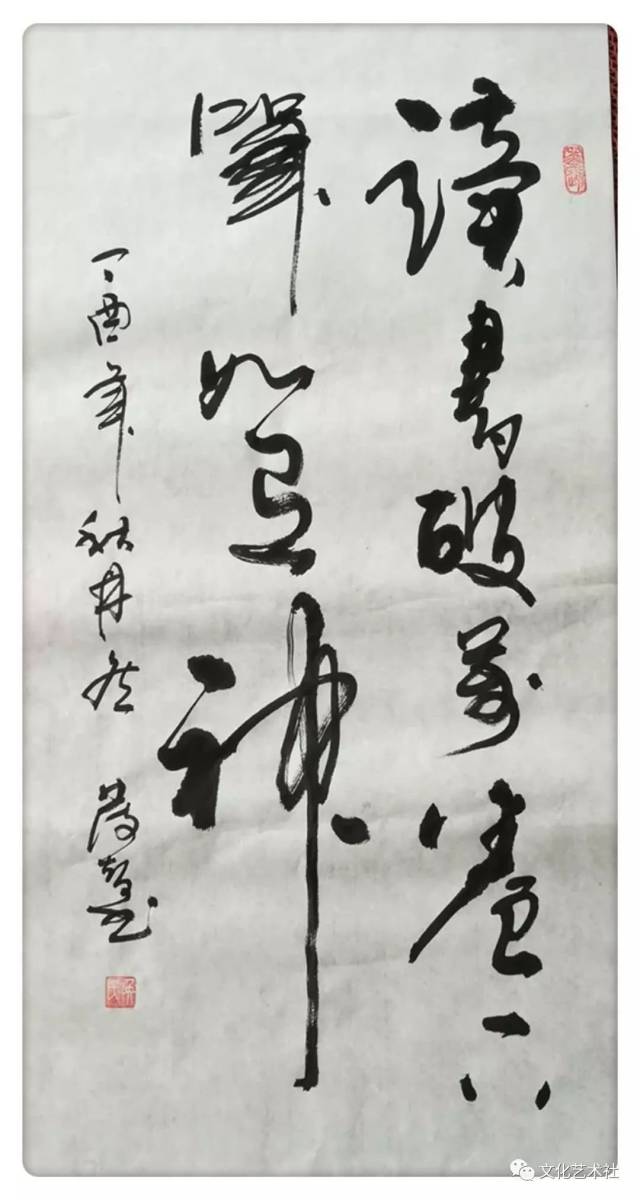 讀書破萬卷下
筆如有神
丁酉年秋月
文化艺术社